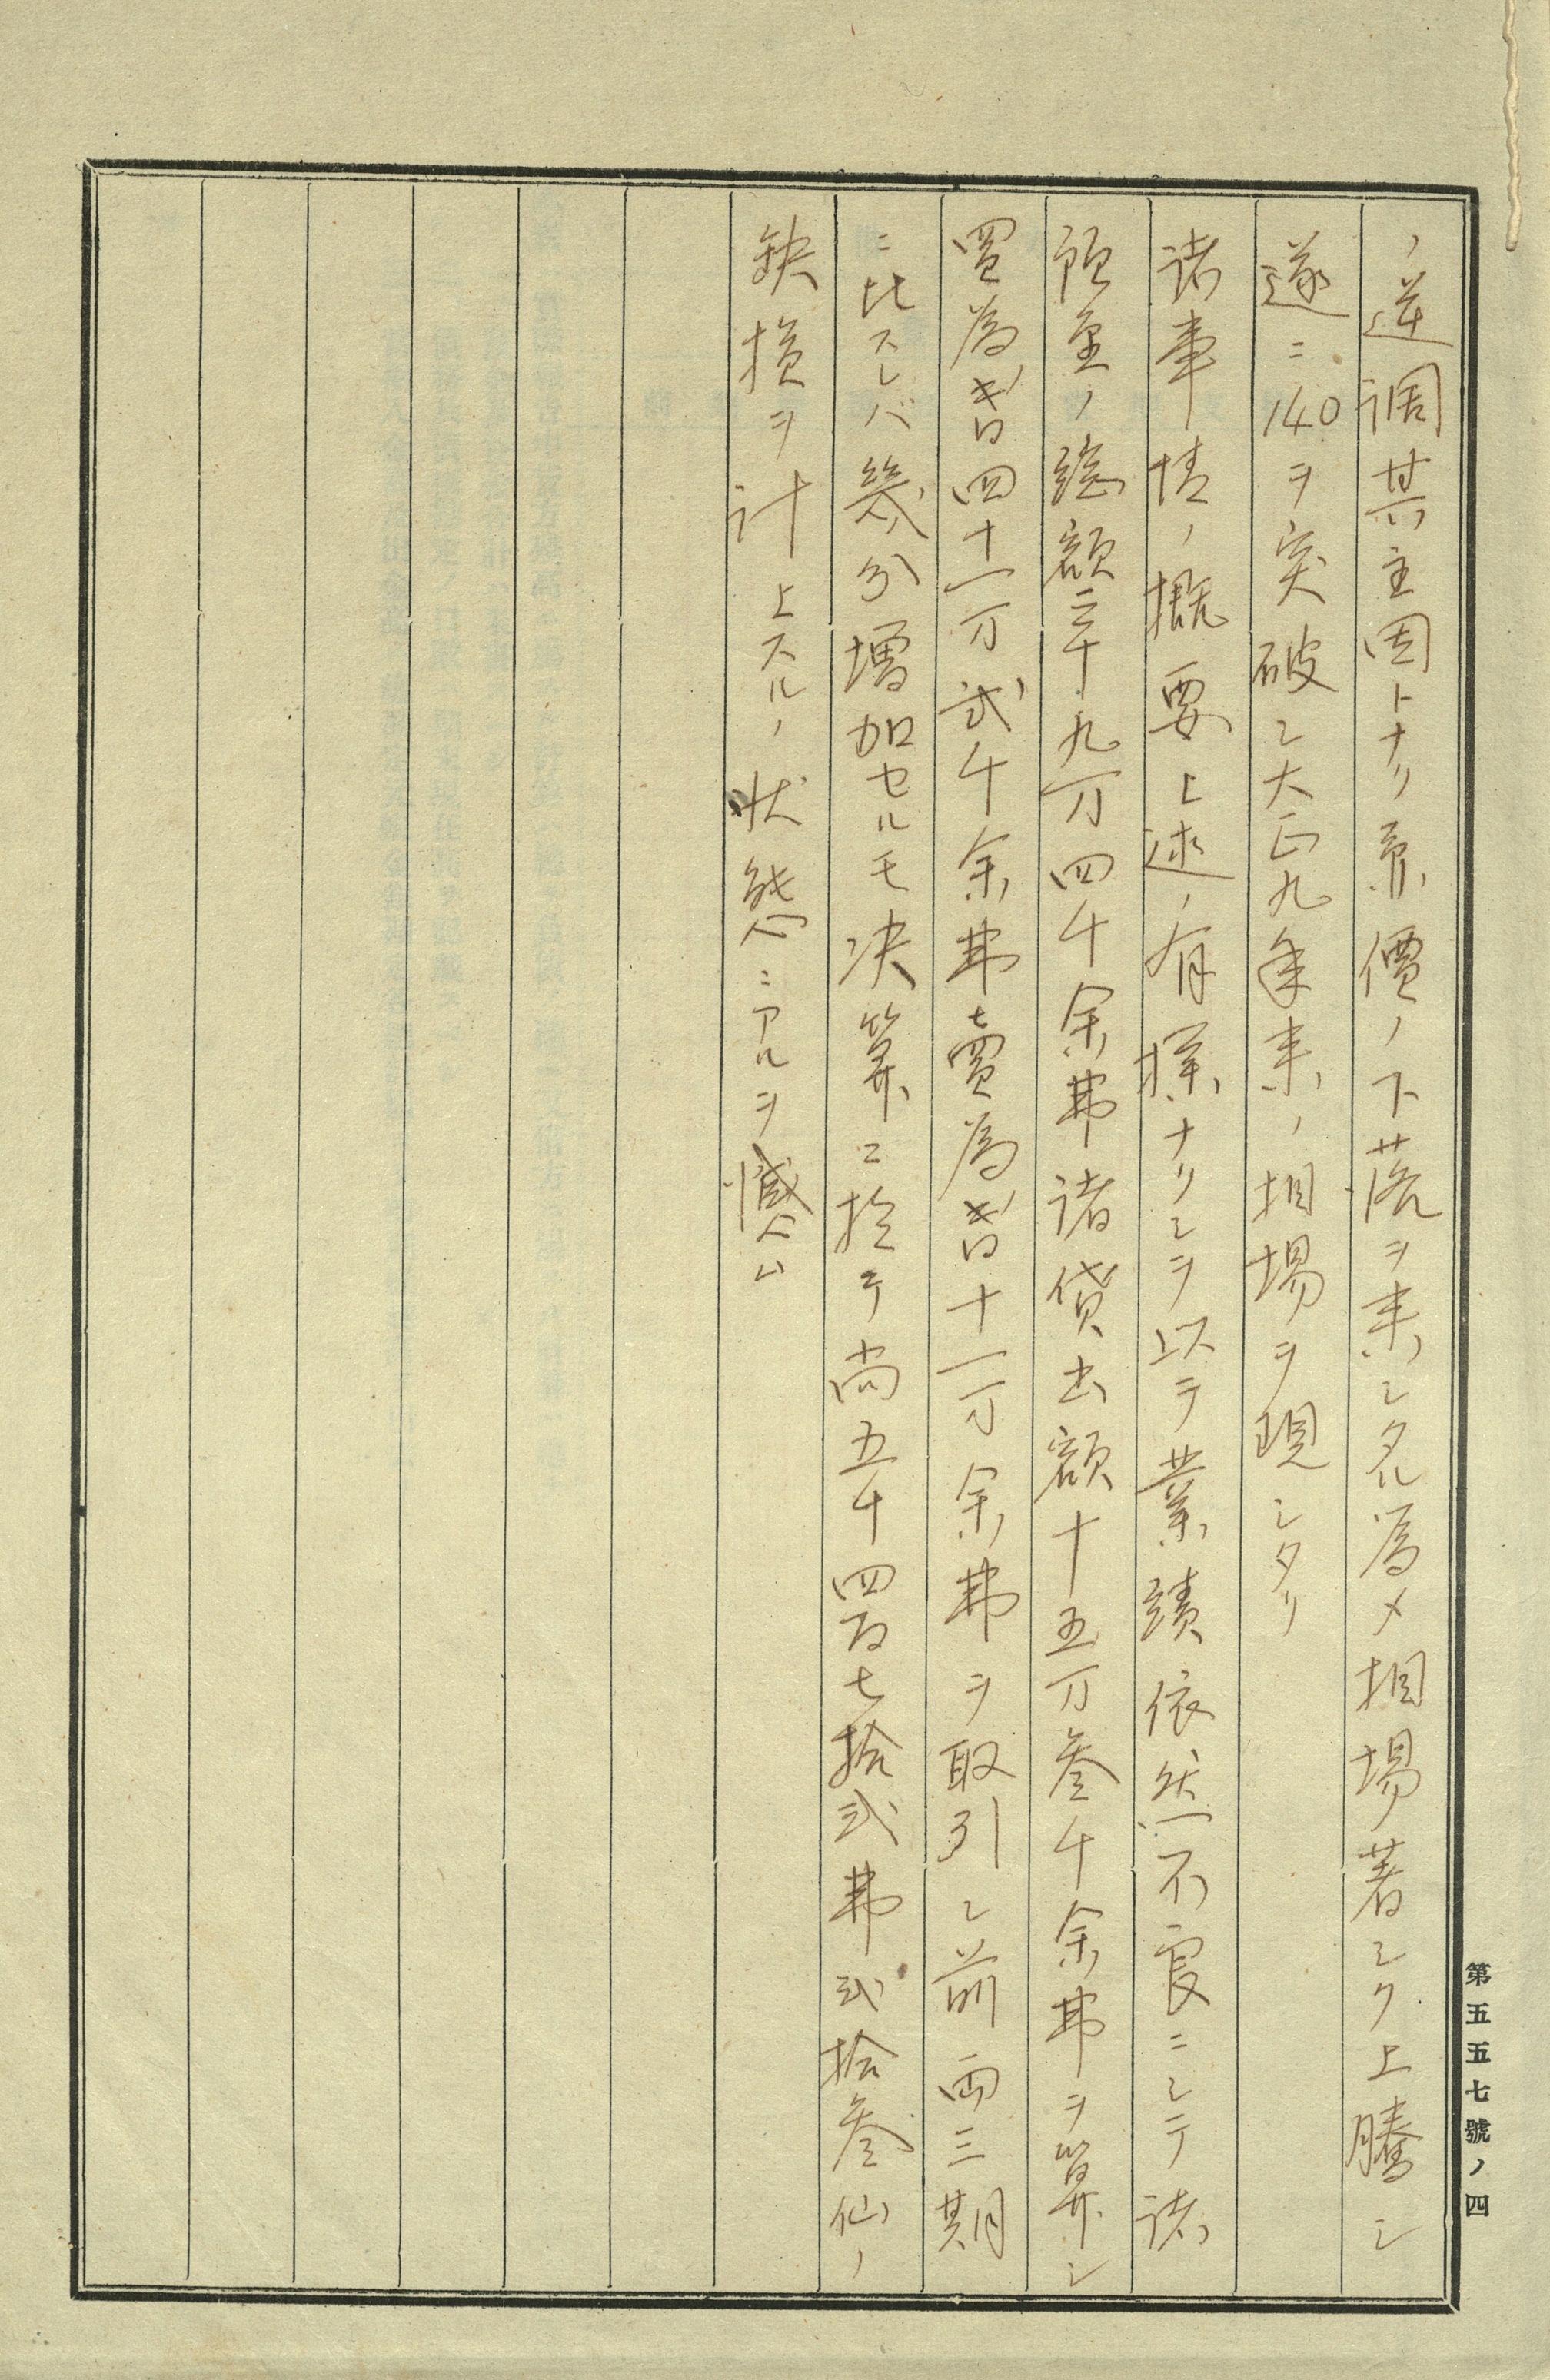 ノ逆調其主因トナリ票價ノ下落ヲ来シタル為メ相場著シク上騰シ
遂ニ140ヲ突破シ大正九年来ノ相場ヲ現シタリ
諸事情ノ概要上述ノ有様ナリシヲ以テ業績依然不良ニシテ諸
預金ノ総額三十九万四千余弗諸貸出額十五万参千余弗ヲ算シ
買為替四十一万弐千余弗賣為替十一万余弗ヲ取引シ前両三期
ニ比スレバ幾分増加セルモ决算ニ於テ尚五千四百七拾弐弗弐拾参仙ノ
缺損ヲ計上スルノ状態ニアルヲ憾ム
第五五七號ノ四